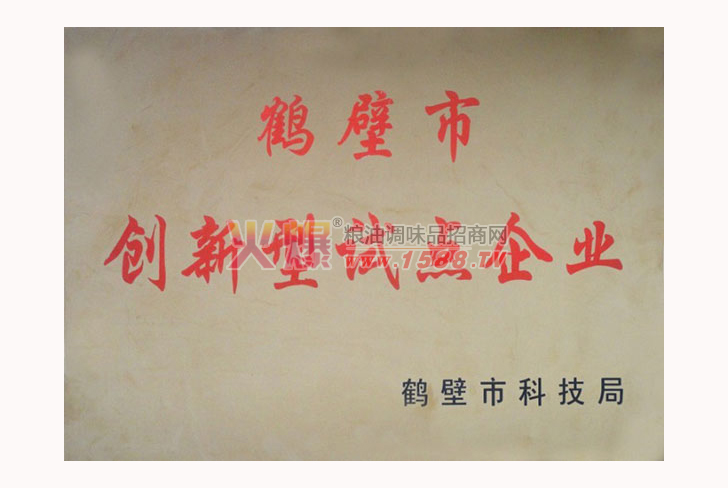 鹤壁市
创新型试点企业
火爆®粮油调味品招商网
www.1588.TV
鹤壁市科技局